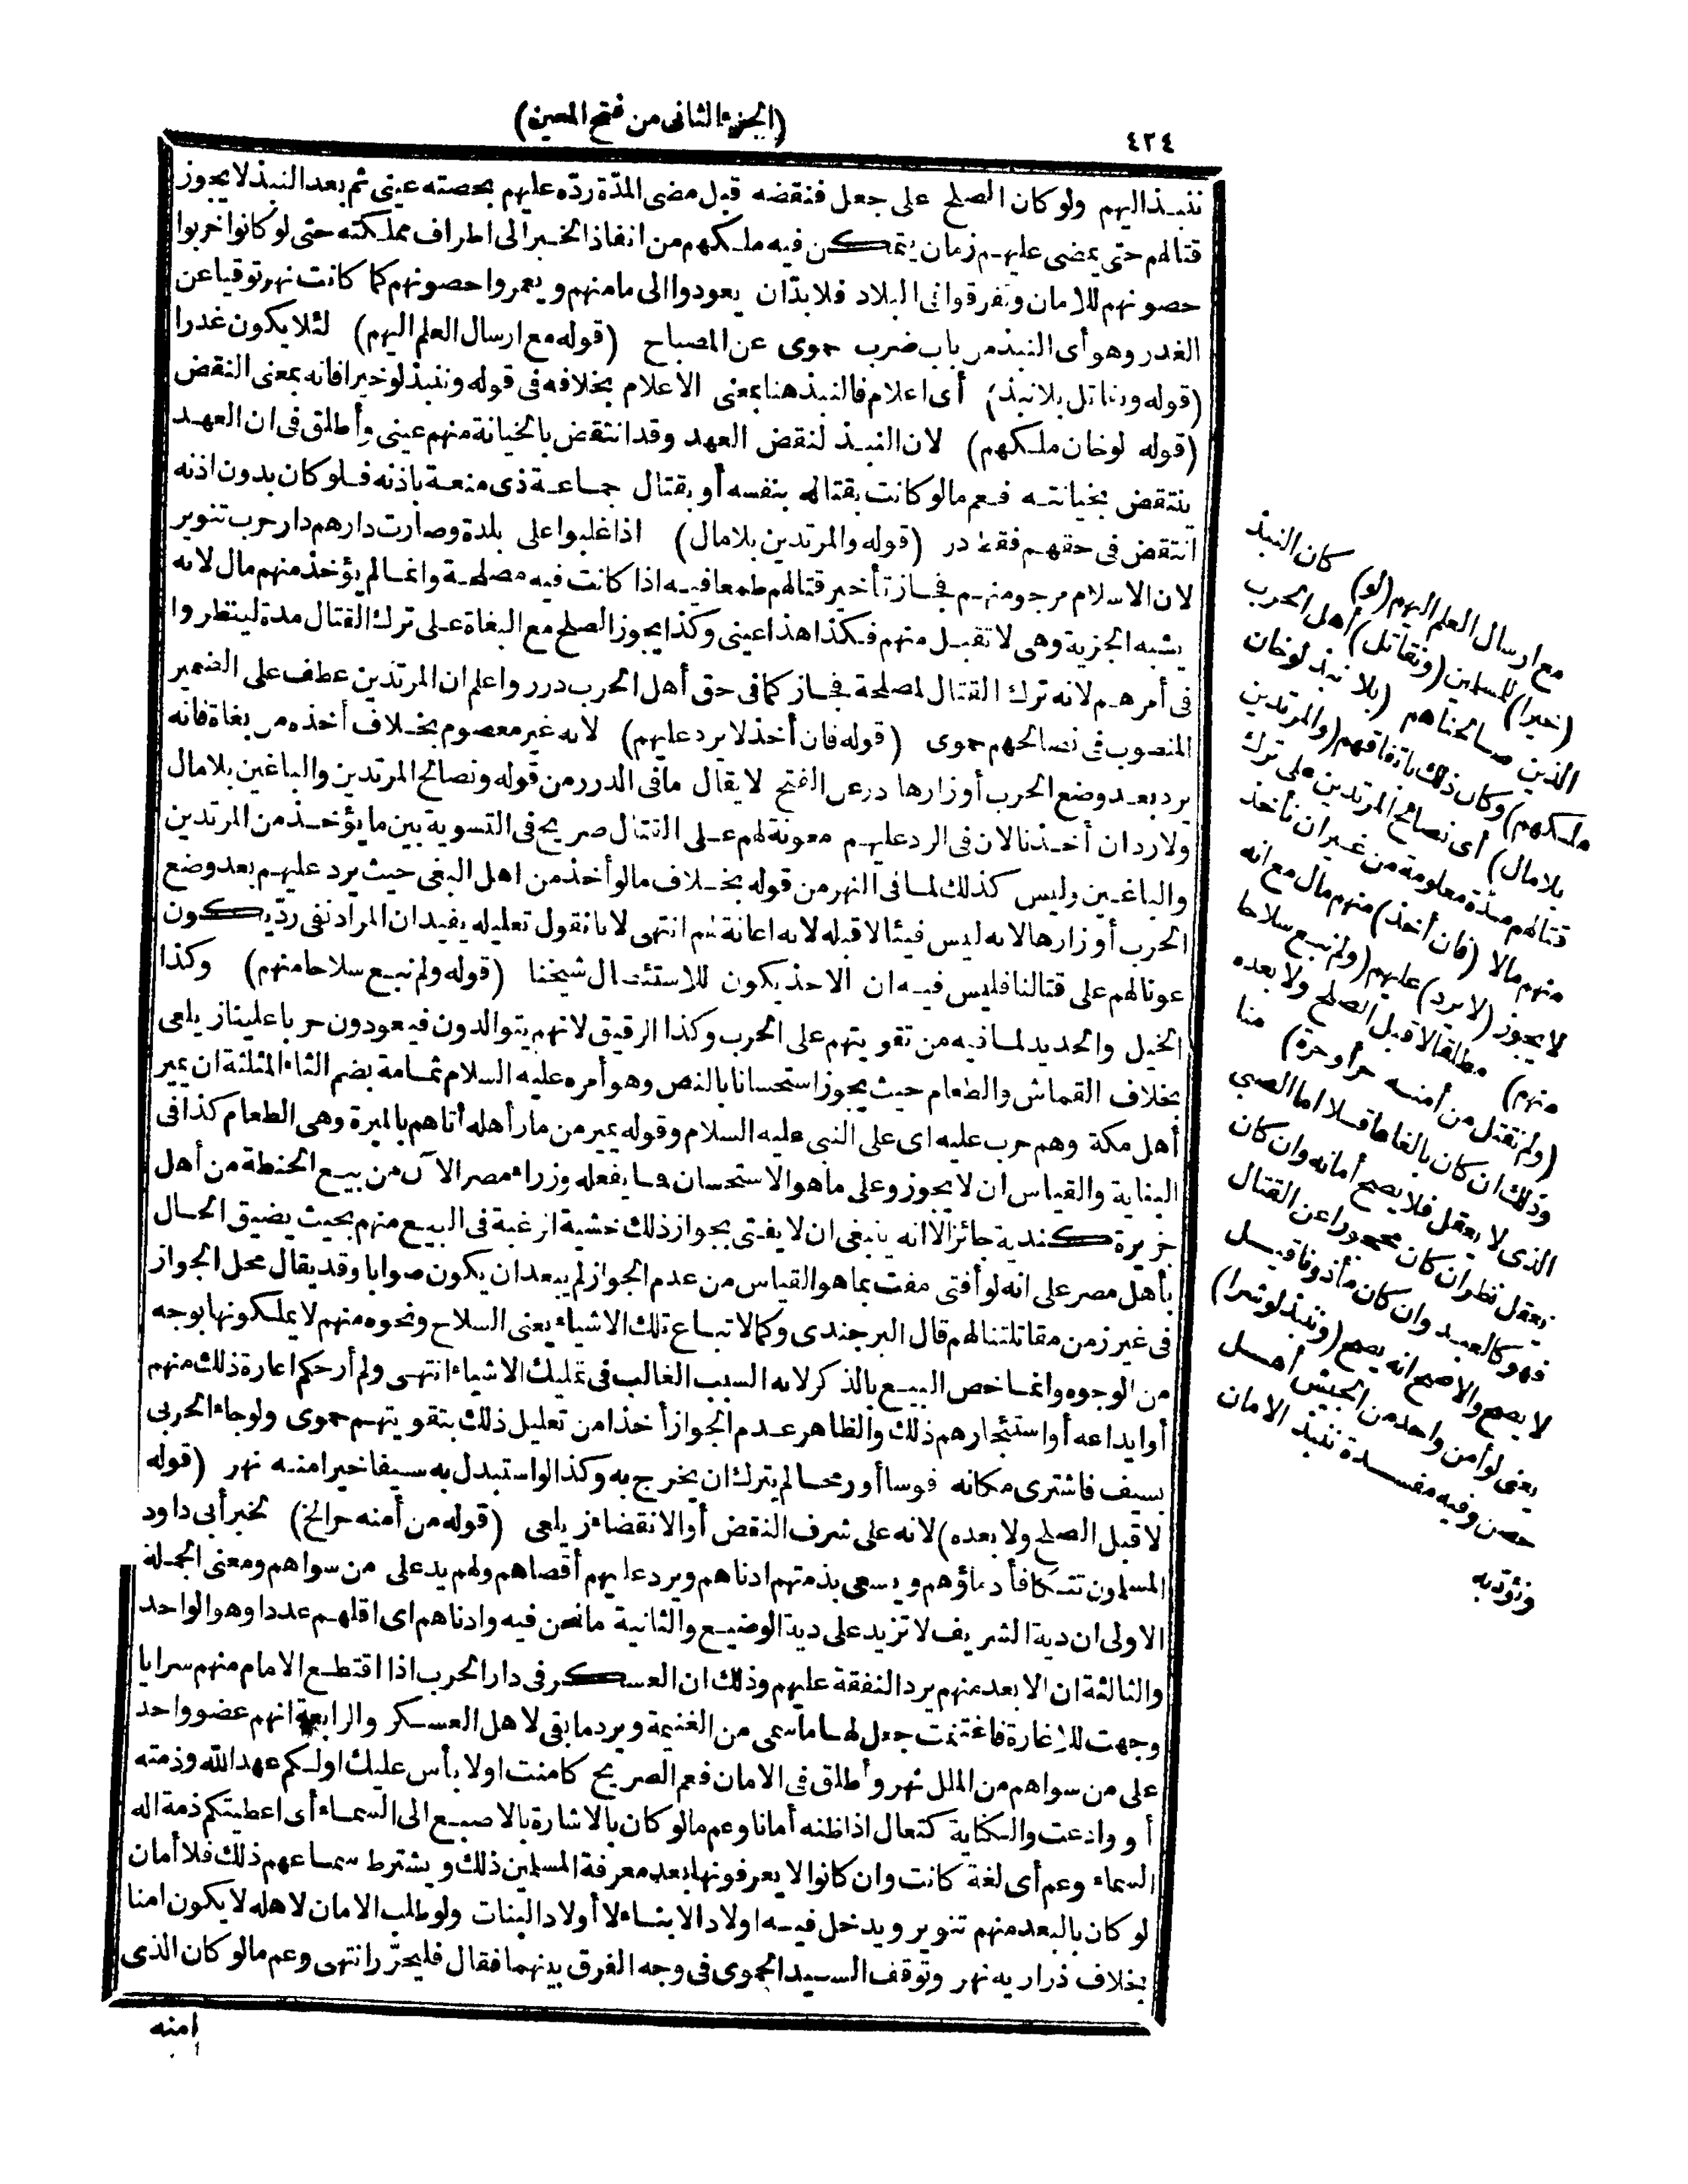 ٤٢٤
(الجزء الثانى من فتح المعين)
ننبذ اليهم ولو كان الصلح على جعل فنقضه قبل مضى المدّة ردّه عليهم بحصته عينى ثم بعد النبذ لا يجوز
قتالهم حتى يمضى عليهم زمان يتمكن فيه ملكهم من انفاذ الخبر الى اطراف مملكته حتى لو كانوا خربوا
حصونهم للامان وتفرقوا فى البلاد فلابدّ ان يعودوا الى مامنهم ويعمروا حصونهم كما كانت نهر توقيا عن
الغدر وهو أى النبذ من باب ضرب حموى عن المصباح (قوله مع ارسال العلم اليهم) لئلا يكون غدرا
(قوله ونقاتل بلا نبذ) أى اعلام فالنبذ هنا بمعنى الاعلام بخلافه فى قوله وننبذ لو خيرا فانه بمعنى النقض
(قوله لو خان ملكهم) لان النبذ لنقض العهد وقد انتقض بالخيانة منهم عينى وأطلق فى ان العهد
ينتقض بخيانته فعم مالو كانت بقتاله بنفسه أو بقتال جماعة ذى منعة باذنه فلو كان بدون اذنه
انتقض فى حقهم فقط در (قوله والمرتدين بلا مال) اذا غلبوا على بلدة وصارت دارهم دار حرب تنوير
لان الاسلام مرجو منهم فجاز تأخير قتالهم طمعا فيه اذا كانت فيه مصلحة وانما لم يؤخذ منهم مال لانه
يشبه الجزية وهى لا تقبل منهم فكذا هذا عينى وكذا يجوز الصلح مع البغاة على ترك القتال مدة لينظروا
فى أمرهم لانه ترك القتال لمصلحة فجاز كما فى حق أهل الحرب درر واعلم ان المرتدين عطف على الضمير
المنصوب فى نصالحهم حموى (قوله فان أخذ لا يرد عليهم) لانه غير معصوم بخلاف أخذه من بغاة فانه
يرد بعد وضع الحرب أوزارها در عن الفتح لا يقال مافى الدرر من قوله ونصالح المرتدين والباغين بلا مال
ولا رد ان أخذنا لان فى الرد عليهم معونة لهم على القتال صريح فى التسوية بين ما يؤخذ من المرتدين
والباغين وليس كذلك لما فى النهر من قوله بخلاف مالو أخذ من اهل البغى حيث يرد عليهم بعد وضع
الحرب أوزارها لانه ليس فيئا لا قبله لانه اعانة لهم انتهى لانا نقول تعليله يفيد ان المراد نفى ردّ يكون
عونا لهم على قتالنا فليس فيه ان الاخذ يكون للاستئصال شيخنا (قوله ولم نبع سلاحا منهم) وكذا
الخيل والحديد لما فيه من تقويتهم على الحرب وكذا الرقيق لانهم يتوالدون فيعودون حربا علينا زيلعى
بخلاف القماش والطعام حيث يجوز استحسانا بالنص وهو أمره عليه السلام ثمامة بضم الثاء المثلثة ان يمير
أهل مكة وهم حرب عليه اى على النبى عليه السلام وقوله يمير من مار أهله أتاهم بالميرة وهى الطعام كذا فى
البناية والقياس ان لا يجوز وعلى ما هو الاستحسان فما يفعله وزراء مصر الآن من بيع الحنطة من أهل
جزيرة كندية جائز الا انه ينبغى ان لا يفتى بجواز ذلك خشية الرغبة فى البيع منهم بحيث يضيق الحال
بأهل مصر على انه لو أفتى مفت بما هو القياس من عدم الجواز لم يبعد ان يكون صوابا وقد يقال محل الجواز
فى غير زمن مقاتلتنا لهم قال البرجندى وكما لا تباع تلك الاشياء يعنى السلاح ونحوه منهم لا يملكونها بوجه
من الوجوه وانما خص البيع بالذكر لانه السبب الغالب فى تمليك الاشياء انتهى ولم أر حكم اعارة ذلك منهم
أو ايداعه أو استئجارهم ذلك والظاهر عدم الجواز أخذا من تعليل ذلك بتقويتهم حموى ولو جاء الحربى
بسيف فاشترى مكانه قوسا أو رمحا لم يترك ان يخرج به وكذا لو استبدل به سيفا خيرا منه نهر (قوله
لا قبل الصلح ولا بعده) لانه على شرف النقض أو الانقضاء زيلعى (قوله من أمنه حر الخ) لخبر أبى داود
المسلمون تتكافأ دماؤهم ويسعى بذمتهم ادناهم ويرد عليهم أقصاهم وهم يد على من سواهم ومعنى الجملة
الاولى ان دية الشريف لا تزيد على دية الوضيع والثانية مانحن فيه وادناهم اى اقلهم عددا وهو الواحد
والثالثة ان الابعد منهم يرد النفقة عليهم وذلك ان العسكر فى دار الحرب اذا اقتطع الامام منهم سرايا
وجهت للاغارة فاغتنمت جعل لها ما سمى من الغنيمة ويرد ما بقى لاهل العسكر والرابعة انهم عضو واحد
على من سواهم من الملل نهر وأطلق فى الامان فعم الصريح كامنت اولا بأس عليك اولكم عهد الله وذمته
أو وادعت والكناية كتعال اذا ظنه أمانا وعم مالو كان بالاشارة بالاصبع الى السماء أى اعطيتكم ذمة اله
السماء وعم أى لغة كانت وان كانوا لا يعرفونها بعد معرفة المسلمين ذلك ويشترط سماعهم ذلك فلا أمان
لو كان بالبعد منهم تنوير ويدخل فيه اولاد الابناء لا أولاد البنات ولو طلب الامان لاهله لا يكون امنا
بخلاف ذراريه نهر وتوقف السيد الحموى فى وجه الفرق بينهما فقال فليحرّر انتهى وعم مالو كان الذى
امنه
مع ارسال العلم اليهم (لو) كان النبذ
(خيرا) للمسلمين (ونقاتل) أهل الحرب
الذين صالحناهم (بلا نبذ لو خان
ملكهم) وكان ذلك باتفاقهم (والمرتدين
بلا مال) أى نصالح المرتدين على ترك
قتالهم مدّة معلومة من غير ان نأخذ
منهم مالا (فان أخذ) منهم مال مع انه
لا يجوز (لا يرد) عليهم (ولم نبع سلاحا
منهم) مطلقا لا قبل الصلح ولا بعده
(ولم نقتل من أمنه حر أو حرة) منا
وذلك ان كان بالغا عاقلا اما الصبى
الذى لا يعقل فلا يصح أمانه وان كان
يعقل نظر ان كان محجورا عن القتال
فهو كالعبد وان كان مأذونا قيل
لا يصح والاصح انه يصح (وننبذ لو شرا)
يعنى لو أمن واحد من الجيش أهل
حصن وفيه مفسدة ننبذ الامان
ونؤدّبه